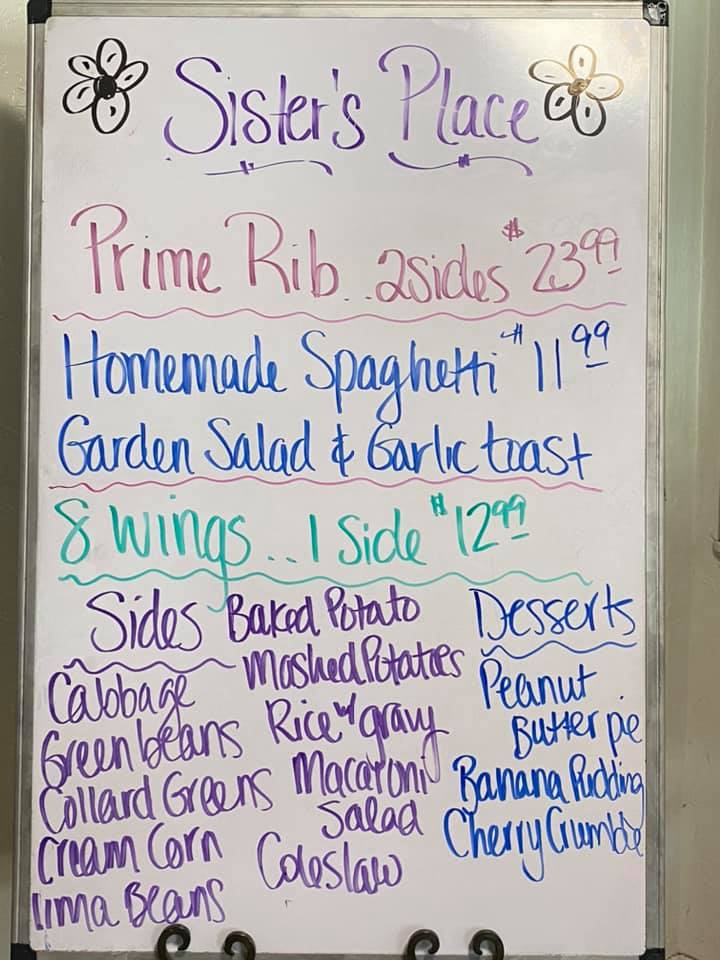 Sister's Place
Prime Rib...2sides $23.99
Homemade Spaghetti $11.99
Garden Salad & Garlic toast
8 Wings...1 Side $12.99
Sides
Cabbage
Green beans
Collard Greens
Cream Corn
lima Beans
Baked Potato
Mashed Potatoes
Rice w/ gravy
Macaroni
Salad
Coleslaw
Desserts
Peanut
Butter pie
Banana Pudding
Cherry Crumble